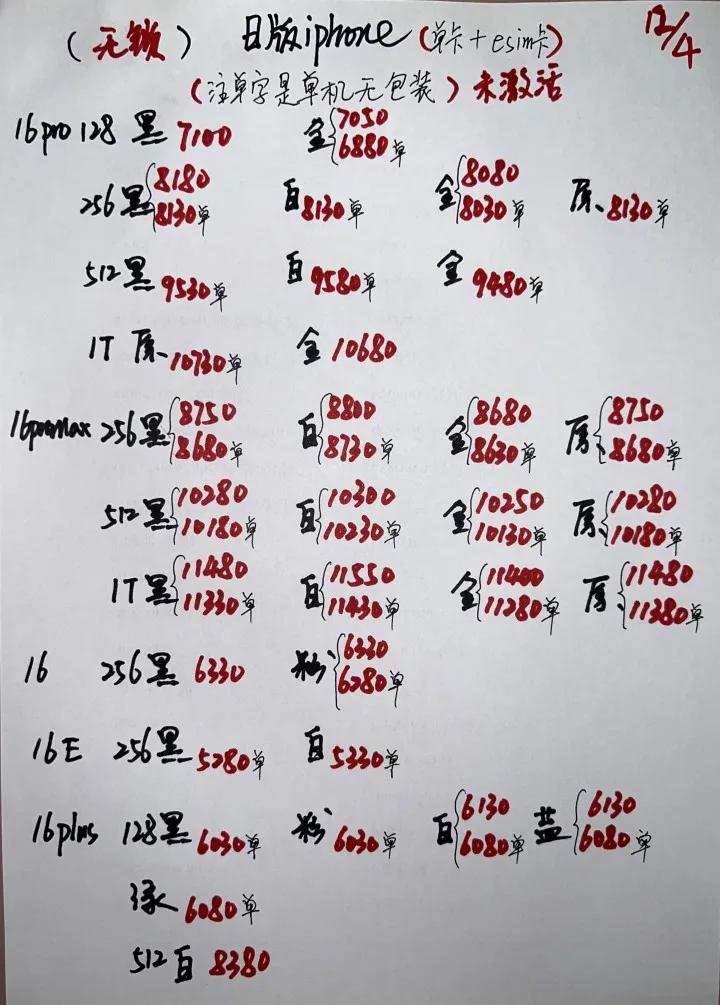 (无锁) 日版iphone (单卡+esim卡) 12/4
(注单字是单机无包装) 未激活
16pro 128 黑 7100 金{7050 6880单
256 黑{8180 8130单 白8130单 金{8080 8030单 原、8130单
512 黑9530单 白9580单 金9480单
1T 原、10730单 金 10680
16promax 256 黑{8750 8680单 白{8800 8730单 金{8680 8630单 原、{8750 8680单
512 黑{10280 10180单 白{10300 10230单 金{10250 10130单 原、{10280 10180单
1T 黑{11480 11330单 白{11550 11430单 金{11400 11280单 原、{11480 11380单
16 256 黑 6330 粉{6330 6280单
16E 256 黑5280单 白5330单
16plus 128 黑6030单 粉6030单 白{6130 6080单 蓝{6130 6080单
绿6080单
512 白 8380